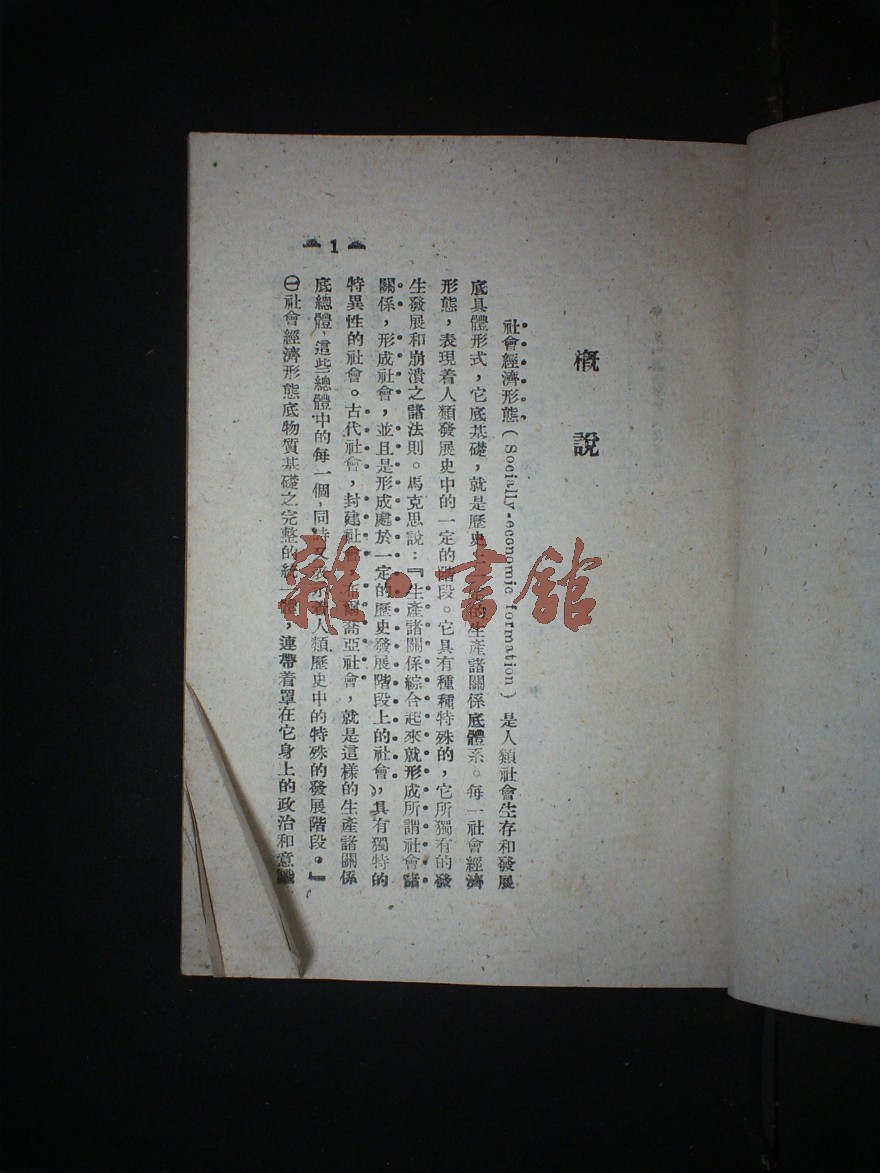 概說
社會經濟形態(Socially-economic formation)是人類社會生存和發展
底具體形式，它底基礎，就是歷史上的生產諸關係底體系。每一社會經濟
形態，表現着人類發展史中的一定的階段。它具有種種特殊的，它所獨有的發
生發展和崩潰之諸法則。馬克思說：『生產諸關係綜合起來就形成所謂社會諸
關係，形成社會，並且是形成處於一定的歷史發展階段上的社會，具有獨特的
特異性的社會。古代社會，封建社會，布爾喬亞社會，就是這樣的生產諸關係
底總體，這些總體中的每一個，同時又表示着人類歷史中的特殊的發展階段。』
㊀社會經濟形態底物質基礎之完整的統一體，連帶着罩在它身上的政治和意識
1
雜·書館